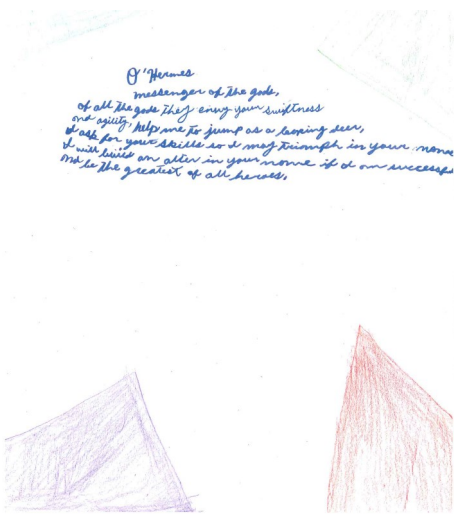 O'Hermes
messenger of the gods,
of all the gods they envy your swiftness
and agility, help me to jump as a leaping deer,
I ask for your skills so I may triomph in your name
I will build an alter in your name if I am successf
and be the greatest of all heroes.